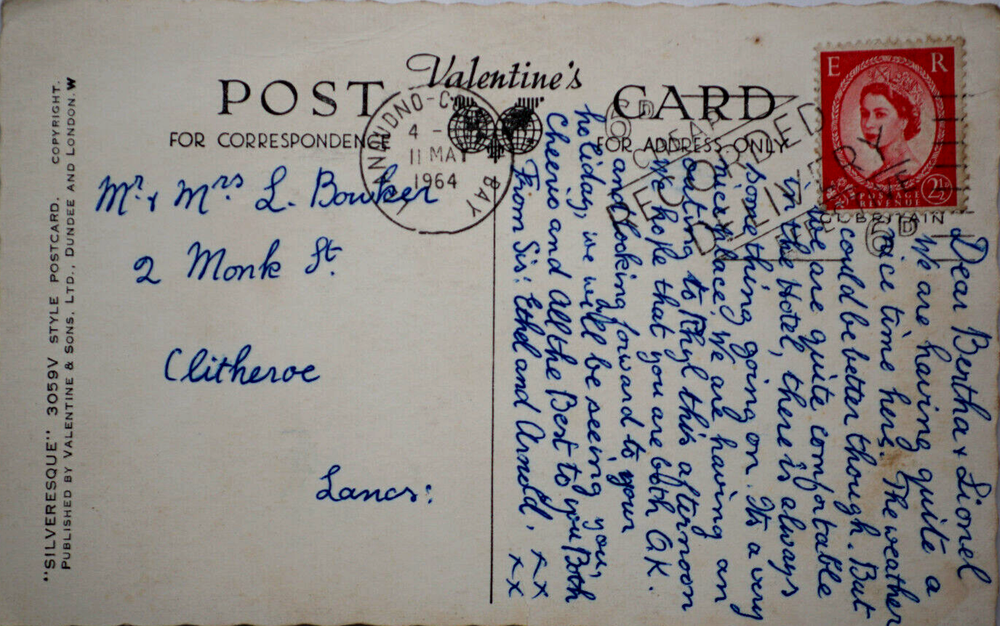 "SILVERESQUE" 3059V STYLE POSTCARD. COPYRIGHT.
PUBLISHED BY VALENTINE & SONS, LTD., DUNDEE AND LONDON. W
POST
Valentine's
CARD
FOR CORRESPONDENCE
FOR ADDRESS ONLY
LLANDUDNO-COLWYN BAY
4 -
11 MAY
1964
E R
POSTAGE
REVENUE
2½
Mr & Mrs L. Bowker
2 Monk St.
Clitheroe
Lancs:
Dear Bertha & Lionel
We are having quite a
nice time here. The weather
could be better though. But
we are quite comfortable
in the Hotel, there is always
something going on. It's a very
nice place. We are having an
outing to Rhyl this afternoon
We hope that you are both O.K.
and looking forward to your
holiday, we will be seeing you,
Cheerio and All the Best to you Both
From Sis: Ethel and Arnold. x x
x x